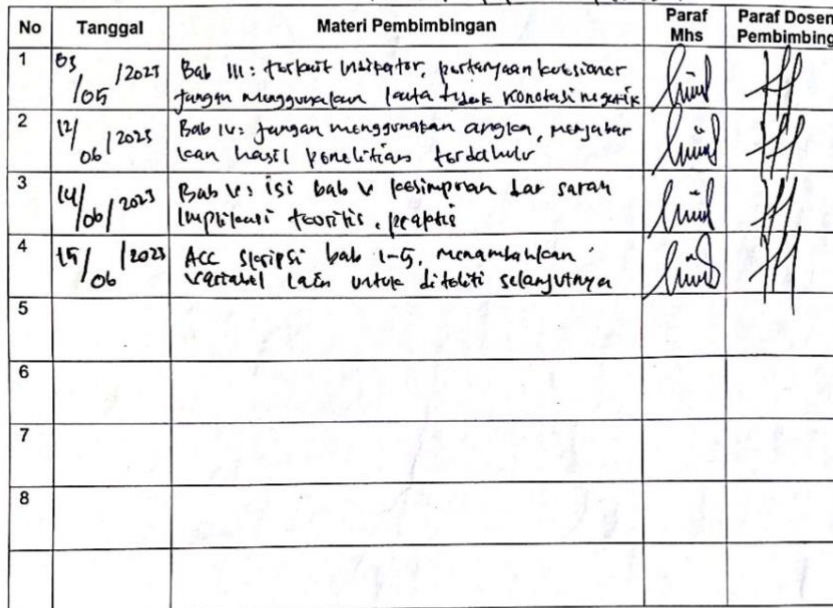 No Tanggal Materi Pembimbingan Paraf Mhs Paraf Dosen Pembimbing
1 03/05/2023 Bab III: terkait Indikator, pertanyaan kuesioner
jangan menggunakan kata tidak konotasi negatif
2 12/06/2023 Bab IV: jangan menggunakan angka, menjabar
kan hasil penelitian terdahulu
3 14/06/2023 Bab V: isi bab V kesimpulan dan saran
Implikasi teoritis, praktis
4 15/06/2023 ACC skripsi bab 1-5, menambahkan
variabel lain untuk diteliti selanjutnya
5
6
7
8